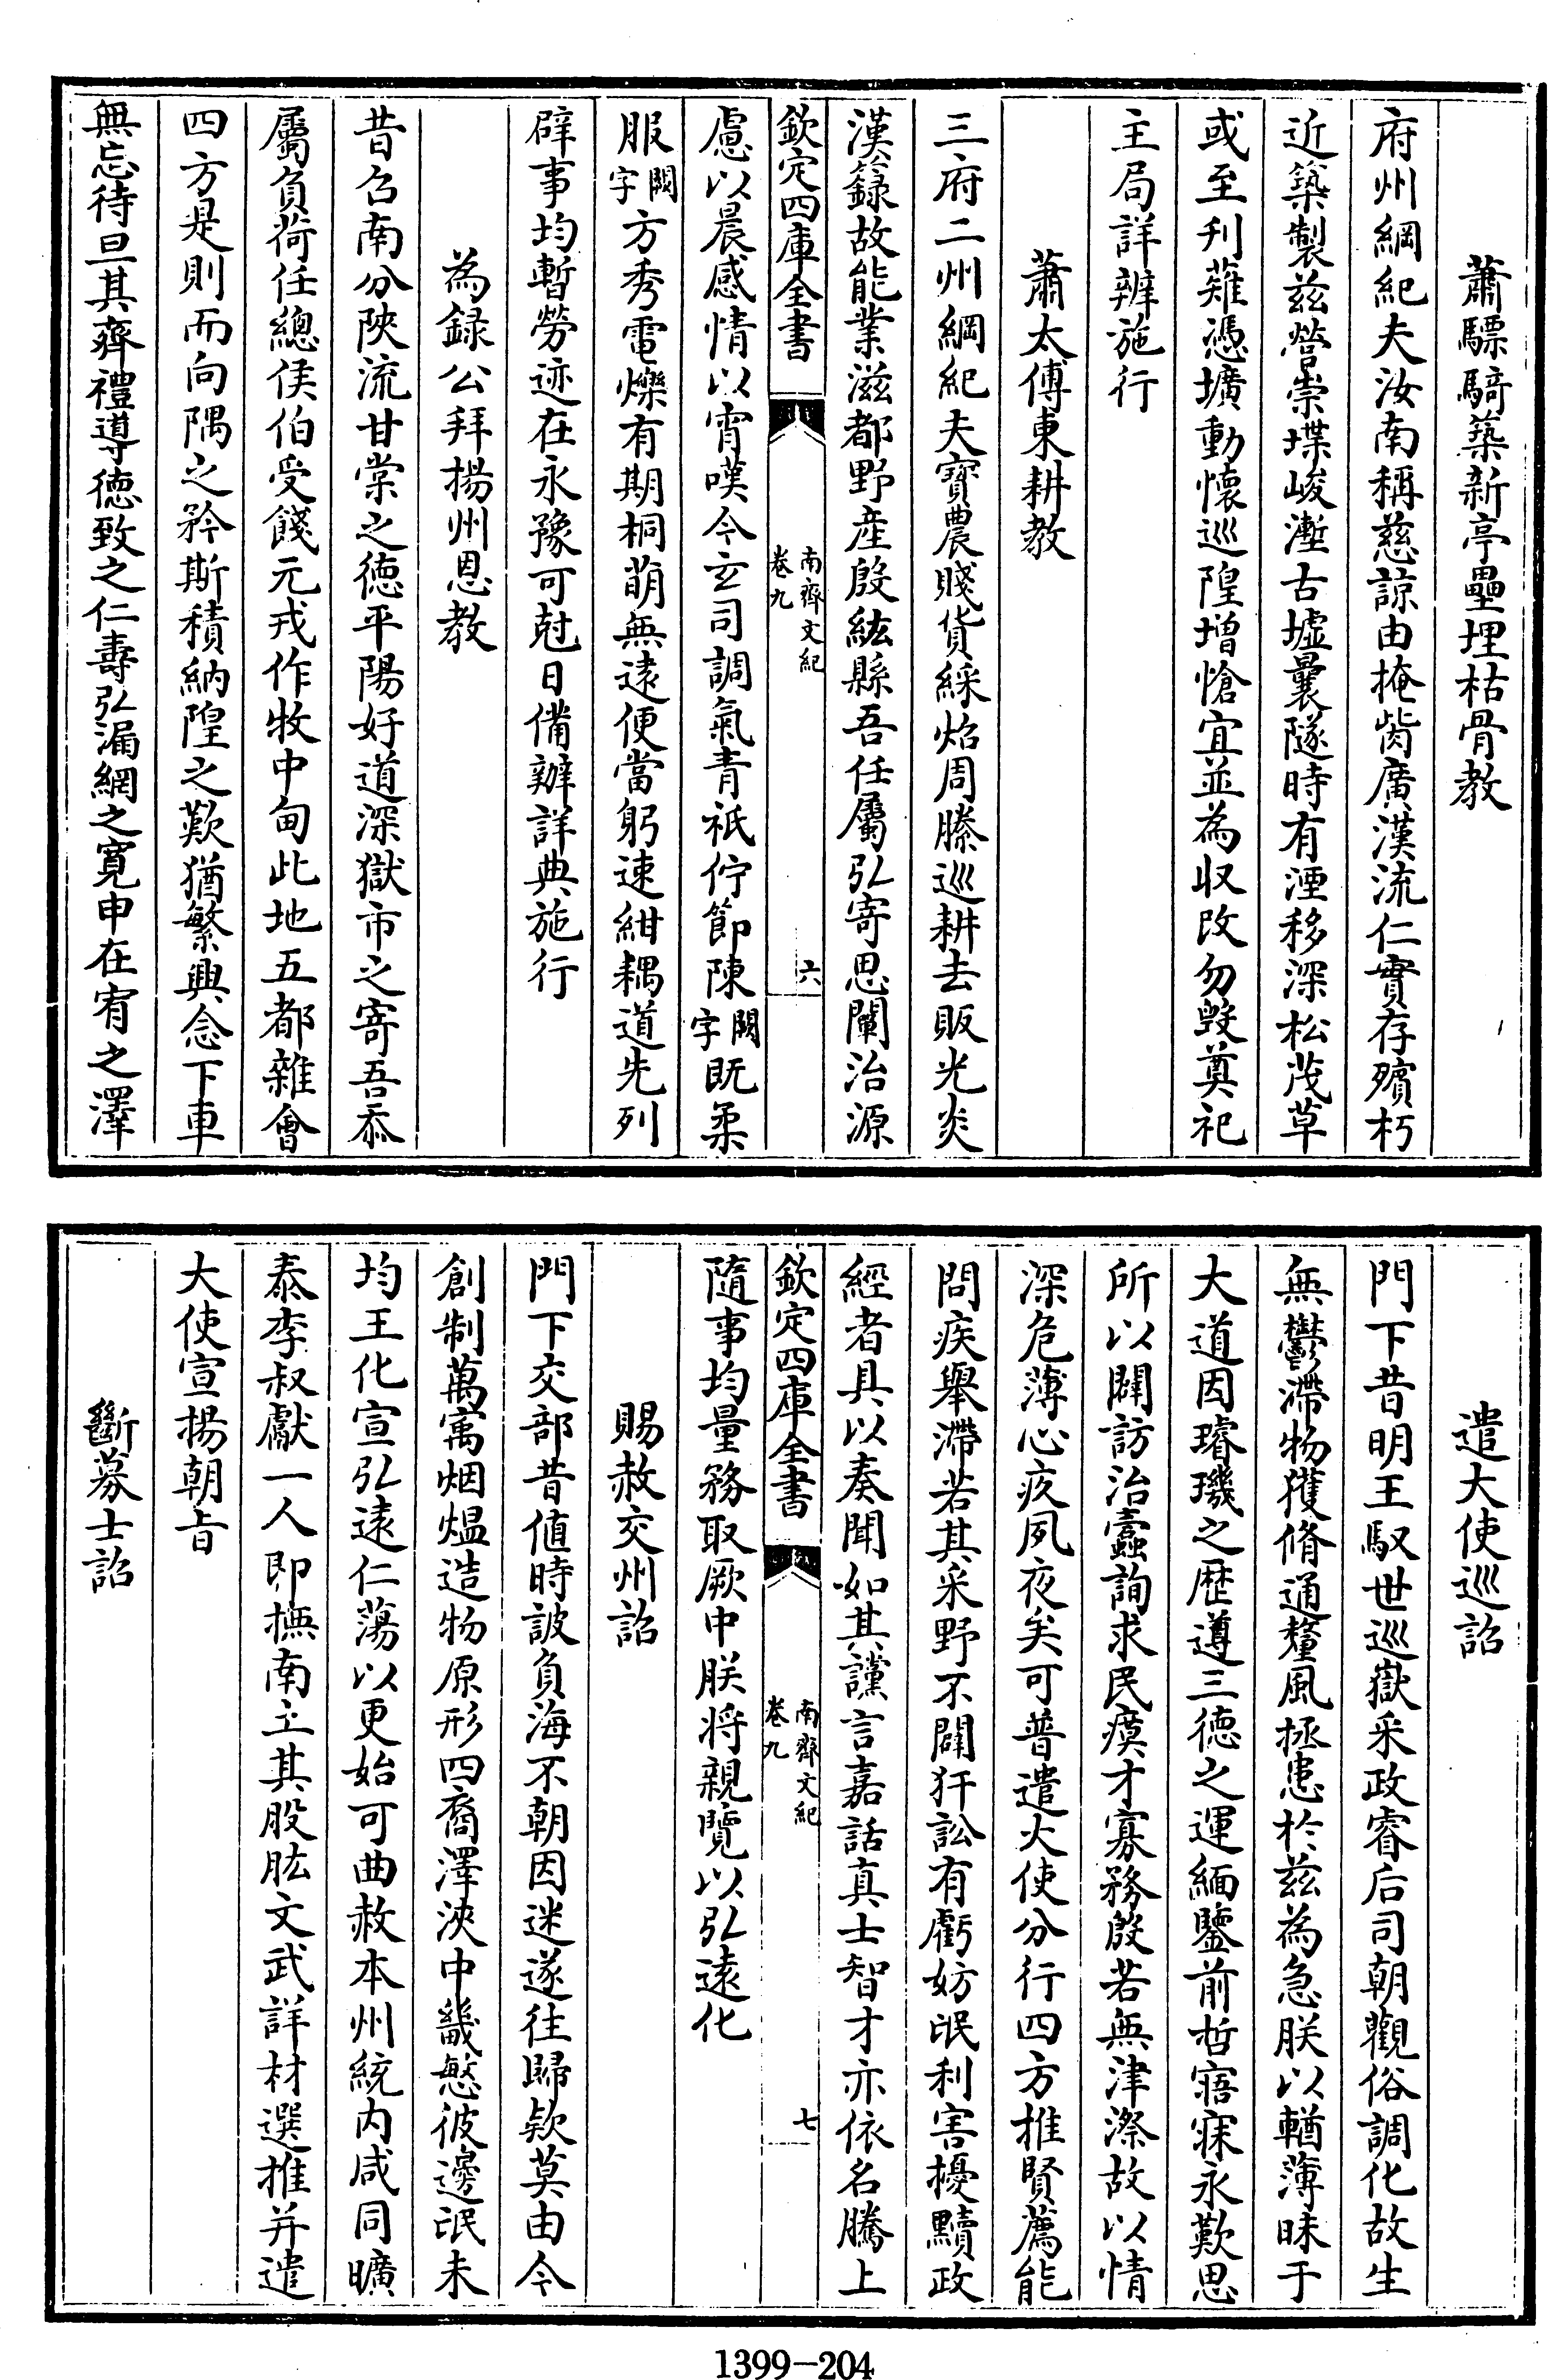 蕭驃騎築新亭壘埋枯骨教
府州綱紀夫汝南稱慈諒由掩胔廣漢流仁實存殯朽
近築製茲營崇堞峻漸古墟曩隧時有湮移深松茂草
或至刋薙憑壙動懷巡隍增愴宜並為収改勿毁奠祀
主局詳辨施行
蕭太傅東耕教
三府二州綱紀夫寳農賤貨綵焰周縢巡耕去販光炎
漢籙故能業滋都野産殷紘縣吾任屬弘寄思闡治源
欽定四庫全書
南齊文紀
卷九
六
慮以晨感情以宵嘆今玄司調氣青祇佇節陳闕字既柔
服闕字方秀電爍有期桐萌無逺便當躬速紺耦道先列
辟事均暫勞迹在永豫可尅日備辦詳典施行
為録公拜揚州恩教
昔召南分陝流甘棠之徳平陽好道深獄市之寄吾忝
屬負荷任總侯伯受餞元戎作牧中甸此地五都雜會
四方是則而向隅之矜斯積納隍之歎猶繁興念下車
無忘待旦其齊禮導徳致之仁壽弘漏網之寛申在宥之澤
遣大使巡詔
門下昔明王馭世巡嶽采政睿后司朝觀俗調化故生
無鬱滯物獲脩通釐風拯患於茲為急朕以輶薄昧于
大道因璿璣之歴遵三徳之運緬鑒前哲寤寐永歎思
所以闢訪治蠧詢求民瘼才寡務殷若無津際故以情
深危薄心疚夙夜矣可普遣大使分行四方推賢薦能
問疾舉滯若其采野不闢犴訟有虧妨氓利害擾黷政
經者具以奏聞如其讜言嘉話真士智才亦依名騰上
欽定四庫全書
南齊文紀
卷九
七
隨事均量務取厥中朕将親覽以弘逺化
賜赦交州詔
門下交部昔値時詖負海不朝因迷遂往歸欵莫由今
創制萬寓烟煴造物原形四裔澤浹中畿愍彼邊氓未
均王化宣弘逺仁蕩以更始可曲赦本州統内咸同曠
泰李叔獻一人即撫南土其股肱文武詳材選推并遣
大使宣揚朝旨
斷募士詔
1399-204